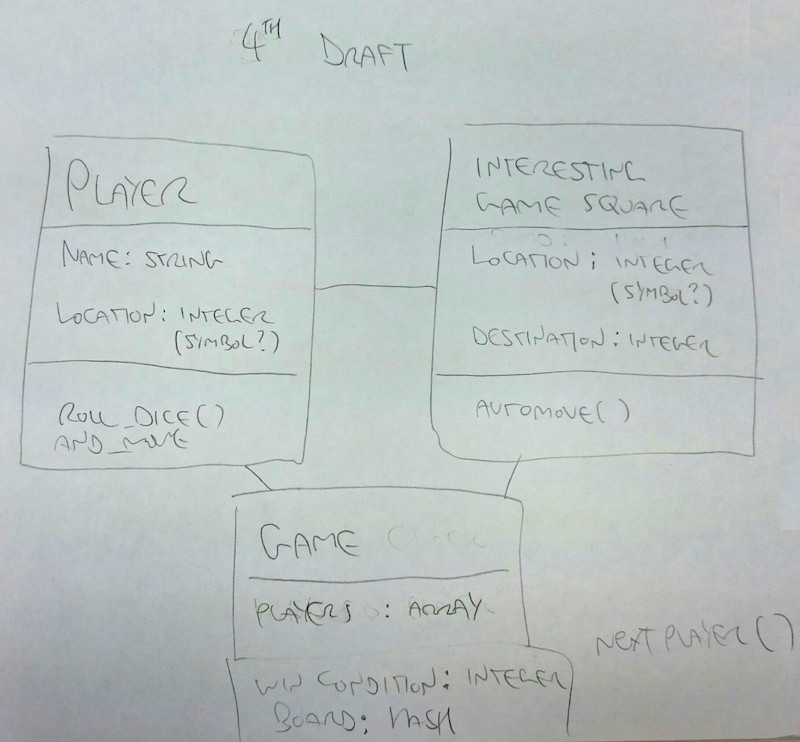 4TH DRAFT
PLAYER
NAME: STRING
LOCATION: INTEGER
(SYMBOL?)
ROLL_DICE()
AND_MOVE
INTERESTING
GAME SQUARE
LOCATION: INTEGER
(SYMBOL?)
DESTINATION: INTEGER
AUTOMOVE()
GAME
PLAYERS: ARRAY
WIN CONDITION: INTEGER
BOARD: HASH
NEXT PLAYER()